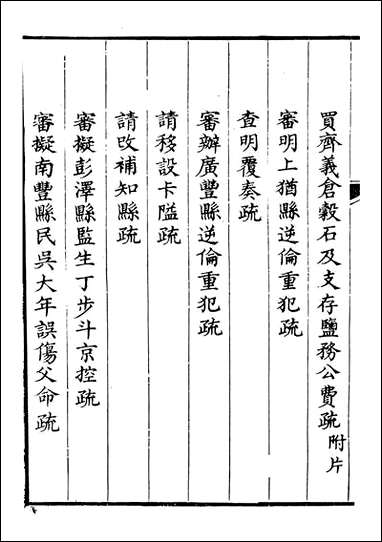 買齊義倉穀石及支存鹽務公費疏附片
審明上猶縣逆倫重犯疏
查明覆奏疏
審辦廣豐縣逆倫重犯疏
請移設卡隘疏
請改補知縣疏
審擬彭澤縣監生丁步斗京控疏
審擬南豐縣民吳大年誤傷父命疏